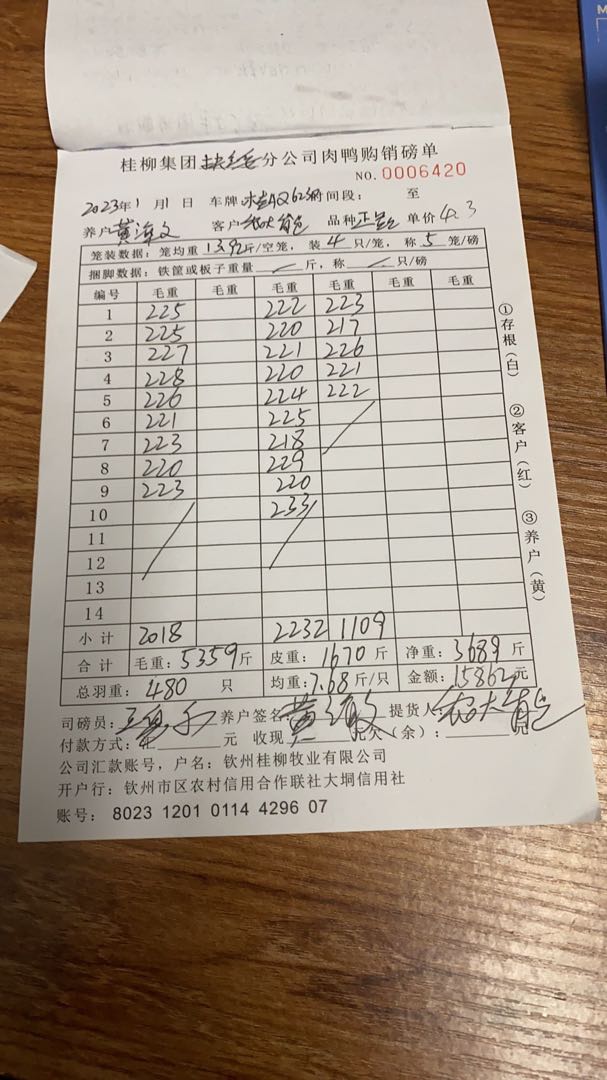 桂柳集团 分公司肉鸭购销磅单
NO. 0006420
2023年1月1日 车牌 时间段: 至
养户 黄 文 客户 农大 品种 正 单价4.3
笼装数据: 笼均重 13.92斤/空笼, 装 4 只/笼, 称 5 笼/磅
捆脚数据: 铁筐或板子重量 / 斤, 称 / 只/磅
编号 毛重 毛重 毛重 毛重 毛重 毛重
1 225 222 223
2 225 220 217
3 227 221 226
4 228 220 221
5 226 224 222
6 221 225
7 223 218
8 220 229
9 223 220
10 233
11
12
13
14
小计 2018 2232 1109
合计 毛重: 5359斤 皮重: 1670斤 净重: 3689斤
总羽重: 480 只 均重: 7.68斤/只 金额: 15862元
司磅员: 养户签名 黄 提货人 农大
付款方式: 元 收现 欠(余):
公司汇款账号, 户名: 钦州桂柳牧业有限公司
开户行: 钦州市区农村信用合作联社大垌信用社
账号: 8023 1201 0114 4296 07
①存根(白)
②客户(红)
③养户(黄)